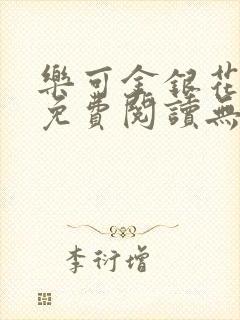 樂可金銀花
免費閱讀無
李衍增